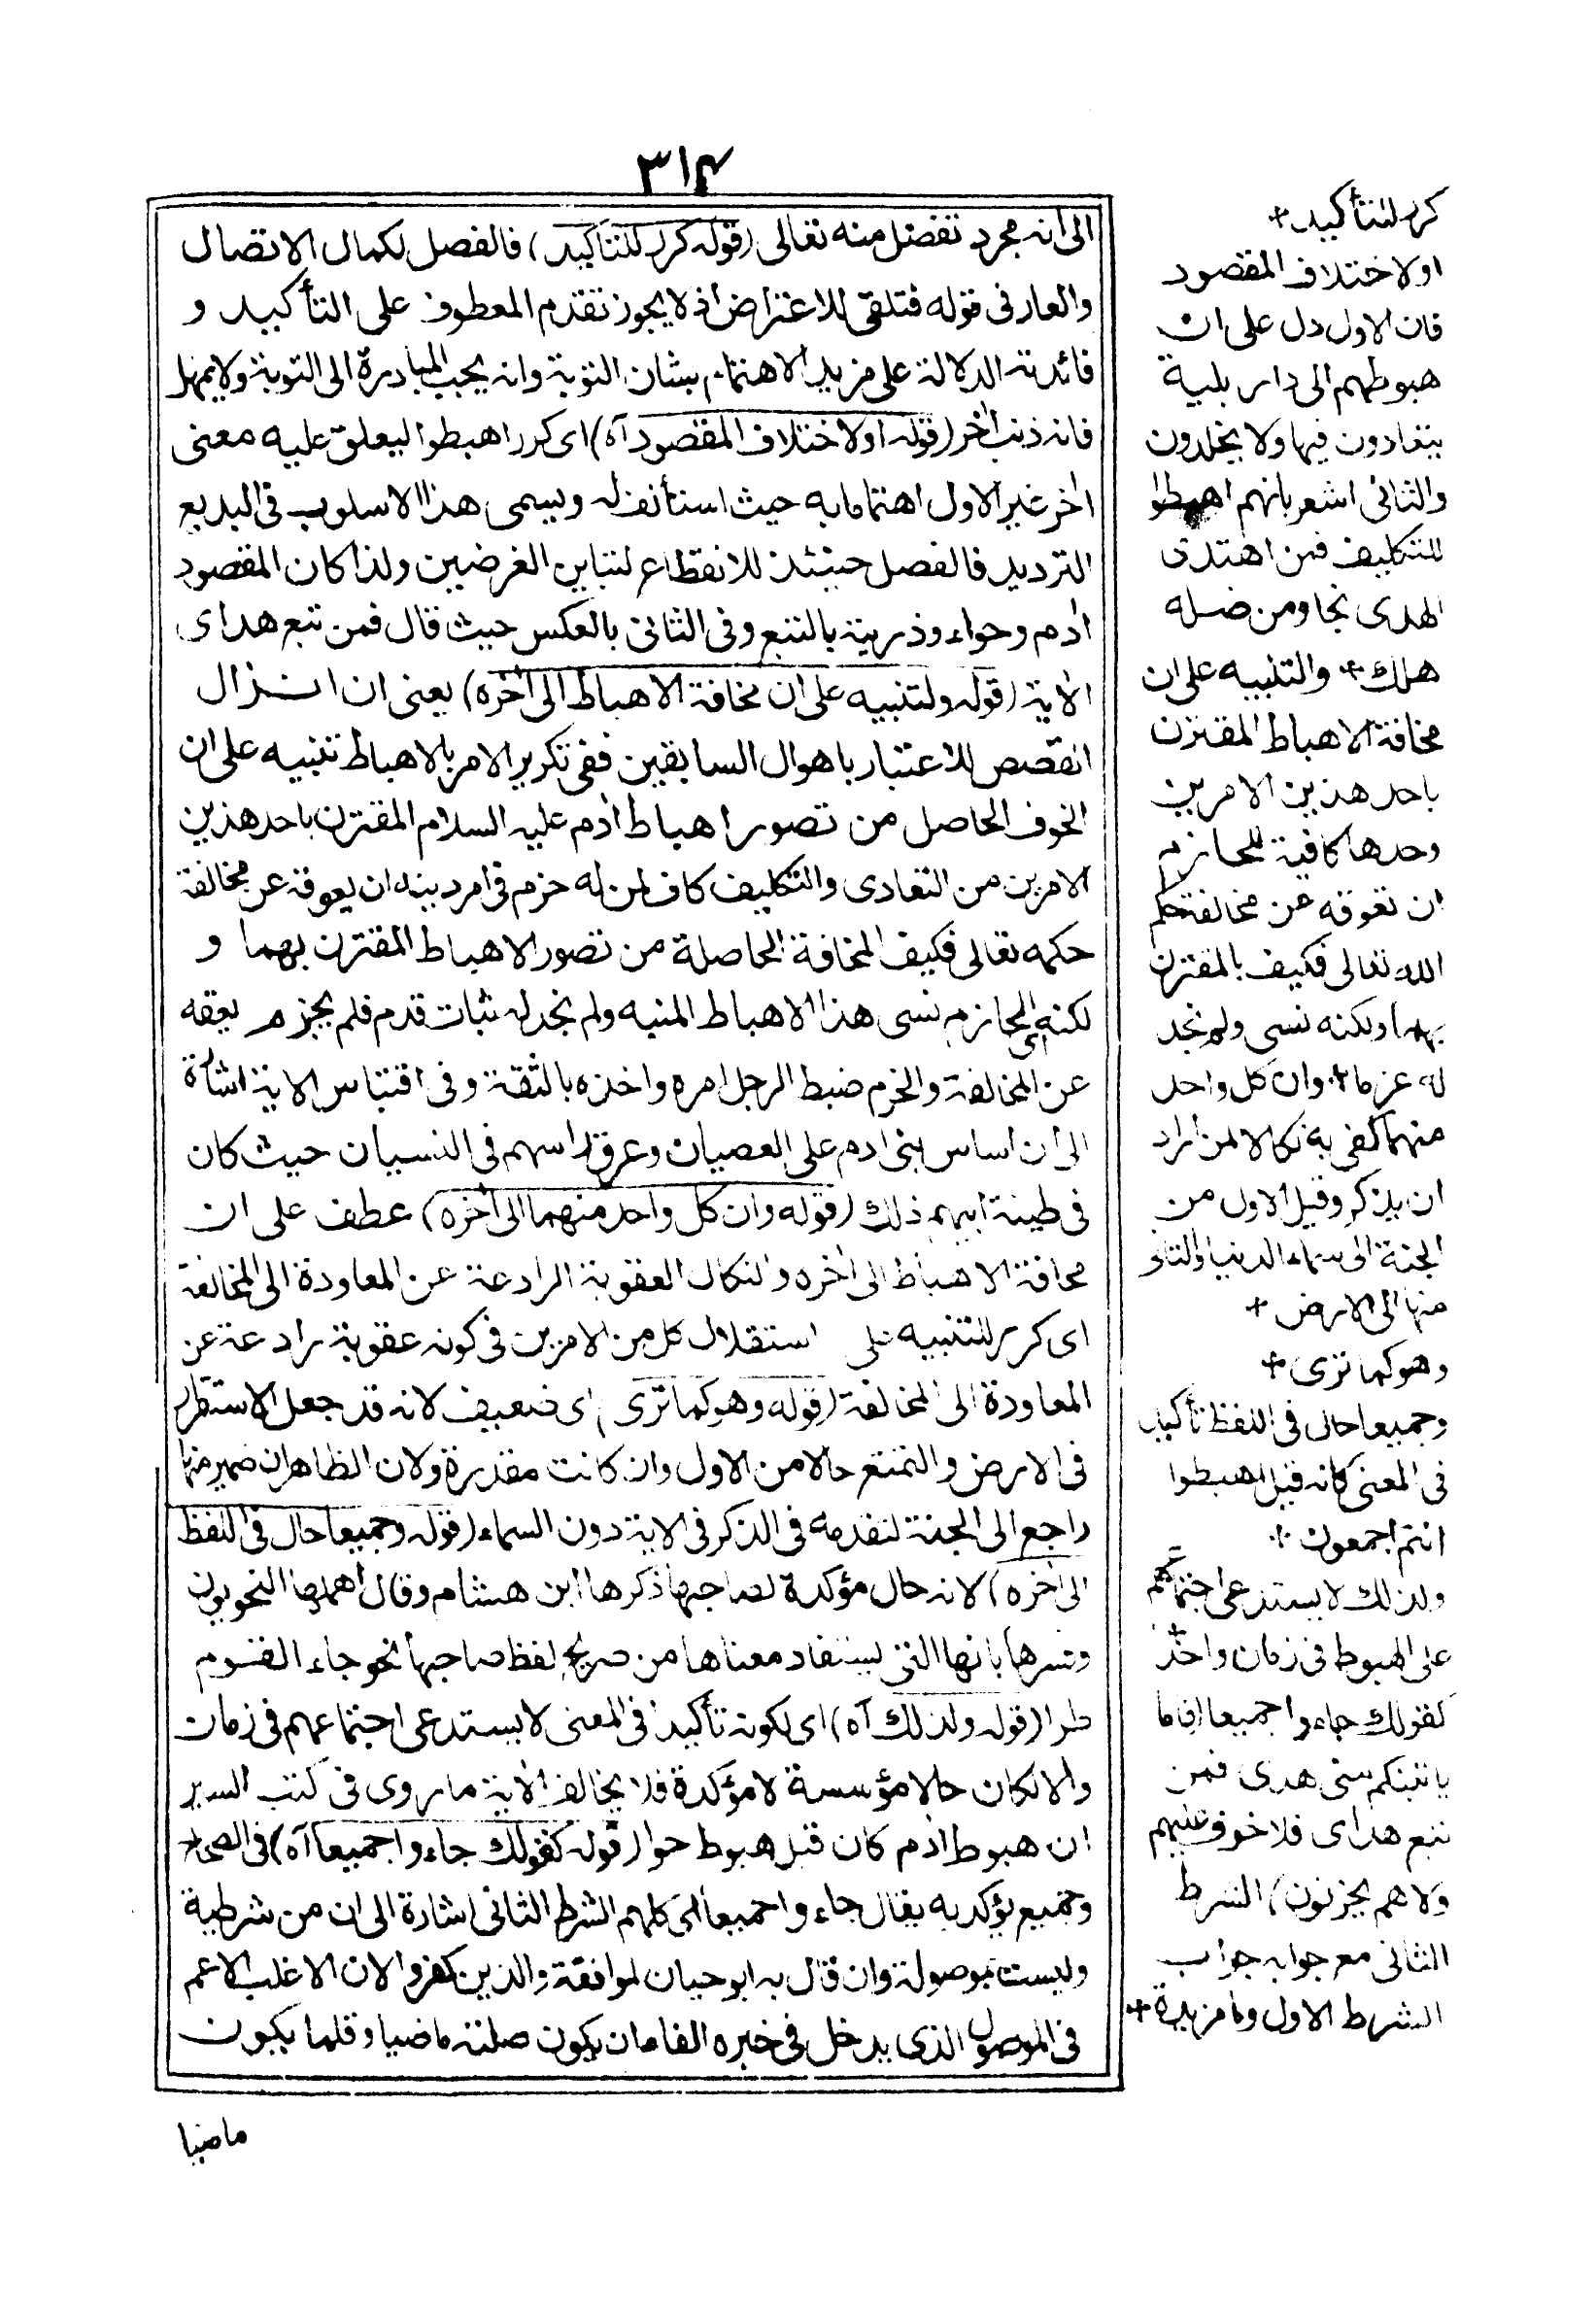 ٣١٤
الى انه مجرد تفضل منه تعالى (قوله كرر للتأكيد) فالفصل لكمال الاتصال
والعار فى قوله فتلقى للاعتراض اذ لا يجوز تقدم المعطوف على التأكيد و
فائدته الدلالة على مزيد الاهتمام بشان التوبة وانه يجب المبادرة الى التوبة ولا يمهل
فانه ذنب اخر (قوله اولا ختلاف المقصود آه) اى كرر اهبطوا ليعلق عليه معنى
اخر غير الاول اهتماما به حيث استأنف له ويسمى هذا الاسلوب فى البديع
الترديد فالفصل حينئذ للانقطاع لتباين الغرضين ولذا كان المقصود
ادم وحواء وذريته بالتبع وفى الثانى بالعكس حيث قال فمن تبع هداى
الاية (قوله ولتنبيه على ان مخافة الاهباط الى اخره) يعنى ان انزال
القصص للاعتبار باهوال السابقين ففى تكرير الامر بالاهباط تنبيه على ان
الخوف الحاصل من تصور اهباط ادم عليه السلام المقترن باحد هذين
الامرين من التعادى والتكليف كاف لمن له حزم فى امر دينه ان يعوقه عن مخالفة
حكمه تعالى فكيف المخافة الحاصلة من تصور الاهباط المقترن بهما و
لكنه اى الحازم نسى هذا الاهباط المنبه ولم نجد له ثبات قدم فلم يجزم يعقه
عن المخالفة والحزم ضبط الرجل امره واخذه بالثقة وفى اقتباس الاية اشارة
الى ان اساس بنى ادم على العصيان وعرق راسهم فى النسيان حيث كان
فى طينة ابيهم ذلك (قوله وان كل واحد منهما الى اخره) عطف على ان
مخافة الاهباط الى اخره والنكال العقوبة الرادعة عن المعاودة الى المخالفة
اى كرر للتنبيه على استقلال كل من الامرين فى كونه عقوبة رادعة عن
المعاودة الى المخالفة (قوله وهو كما ترى) اى ضعيف لانه قد جعل الاستقرار
فى الارض والتمتع حالا من الاول وان كانت مقدرة ولان الظاهر ان ضمير منها
راجع الى الجنة لتقدمه فى الذكر فى الاية دون السماء (قوله وجميعا حال فى اللفظ
الى اخره) لانه حال مؤكدة لصاحبها ذكرها ابن هشام وقال اهملها النحويون
وفسرها بانها التى يستفاد معناها من صريح لفظ صاحبها نحو جاء القوم
طرا (قوله ولذلك آه) اى لكونه تأكيدا فى المعنى لا يستدعى اجتماعهم فى زمان
والا لكان حالا مؤسسة لا مؤكدة فلا يخالف الاية ما روى فى كتب السير
ان هبوط ادم كان قبل هبوط حوا (قوله كقولك جاءوا جميعا آه) فى الصحاح
وجميع يؤكد به يقال جاءوا جميعا اى كلهم الشرط الثانى اشارة الى ان من شرطية
وليست موصولة وان قال به ابو حيان لموافقة والذين كفروا لان الاغلب الاعم
فى الموصول الذى يدخل فى خبره الفاء ان يكون صلته ماضيا وقلما يكون
ماضيا
كرر للتأكيد +
اولاختلاف المقصود
فان الاول دل على ان
هبوطهم الى دار بلية
يتعادون فيها ولا يخلدون
والثانى اشعر بانهم اهبطوا
للتكليف فمن اهتدى
الهدى نجا ومن ضله
هلك + والتنبيه على ان
مخافة الاهباط المقترن
باحد هذين الامرين
وحدها كافية للحازم
ان تعوقه عن مخالفة حكم
الله تعالى فكيف بالمقترن
بهما ولكنه نسى ولم نجد
له عزما + وان كل واحد
منهما كفى به نكالا لمن اراد
ان يذكر وقيل الاول من
الجنة الى سماء الدنيا والثانى
منها الى الارض +
وهو كما ترى +
وجميعا حال فى اللفظ تأكيد
فى المعنى كانه قيل اهبطوا
انتم اجمعون +
ولذلك لا يستدعى اجتماعهم
على الهبوط فى زمان واحد
كقولك جاءوا جميعا (فاما
يأتينكم منى هدى فمن
تبع هداى فلا خوف عليهم
ولا هم يحزنون) الشرط
الثانى مع جوابه جواب
الشرط الاول وما مزيدة +